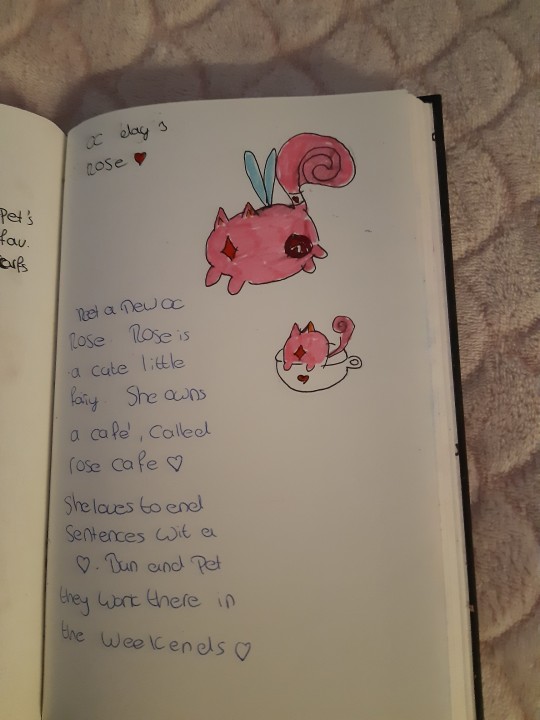 Pet's
fav.
OC day 3
Rose ♥
Meet a new oc
Rose Rose is
a cute little
fairy. She owns
a café, Called
rose cafe ♡
She loves to end
Sentences wit a
♡. Bun and Pet
they work there in
the weekends ♡